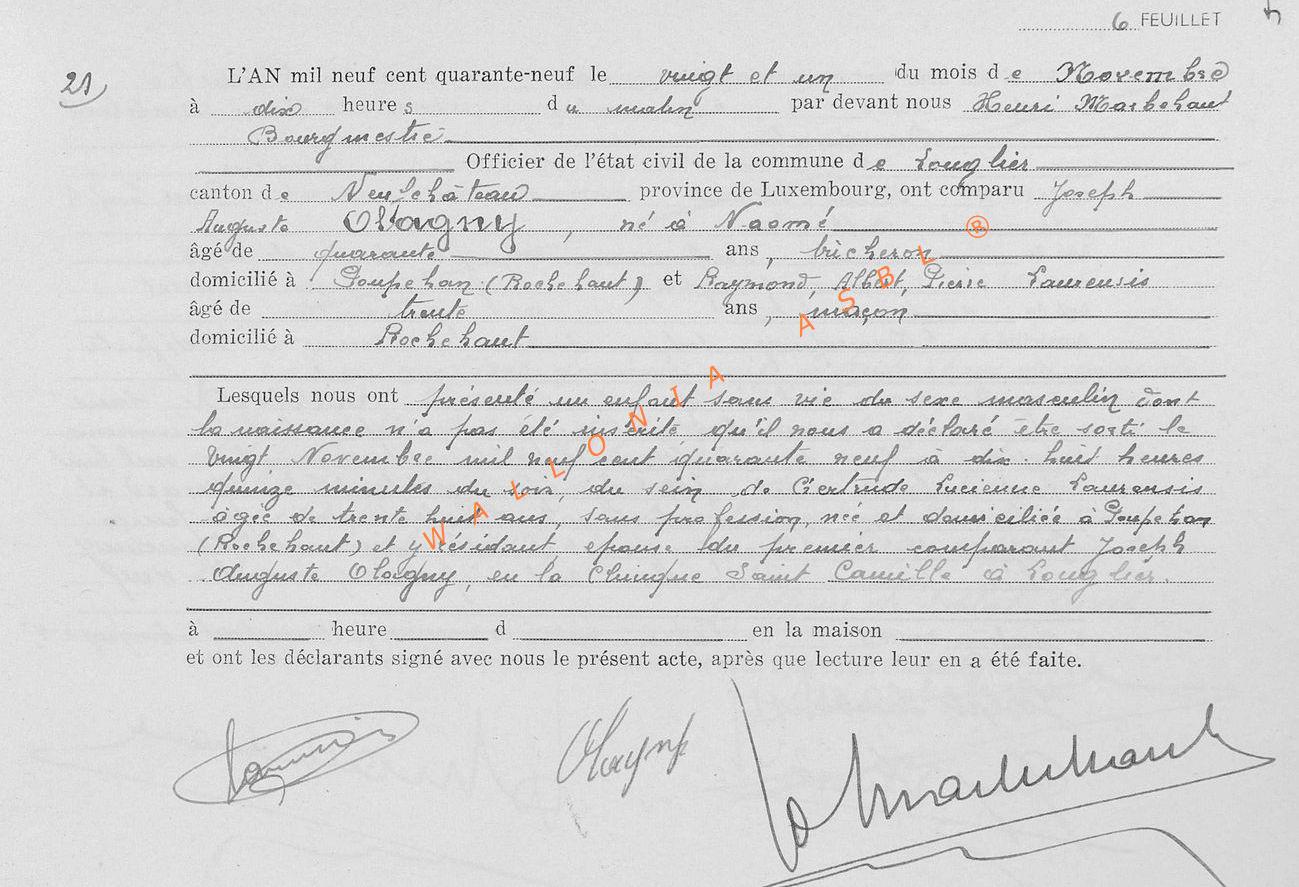 6 FEUILLET
21
L'AN mil neuf cent quarante-neuf le vingt et un du mois de Novembre
à dix heures du matin par devant nous Henri Marbehant
Bourgmestre
Officier de l'état civil de la commune de Longlier
canton de Neufchâteau province de Luxembourg, ont comparu Joseph
Auguste Olagny, né à Naomé
âgé de quarante ans, bûcheron
domicilié à Poupehan (Rochehaut) et Raymond, Albert, Pierre Laurensis
âgé de trente ans, maçon
domicilié à Rochehaut
Lesquels nous ont présenté un enfant sans vie du sexe masculin dont
la naissance n'a pas été inscrite, qu'il nous a déclaré être sorti le
Vingt Novembre mil neuf cent quarante neuf à dix-huit heures
quinze minutes du soir, du sein de Gertrude Lucienne Laurensis
âgée de trente huit ans, sans profession, née et domiciliée à Poupehan
(Rochehaut) et y résidant, epouse du premier comparant Joseph
Auguste Olagny, en la Clinique Saint Camille à Longlier.
à heure d en la maison
et ont les déclarants signé avec nous le présent acte, après que lecture leur en a été faite.
Olagny
WALLONIA ASBL ®